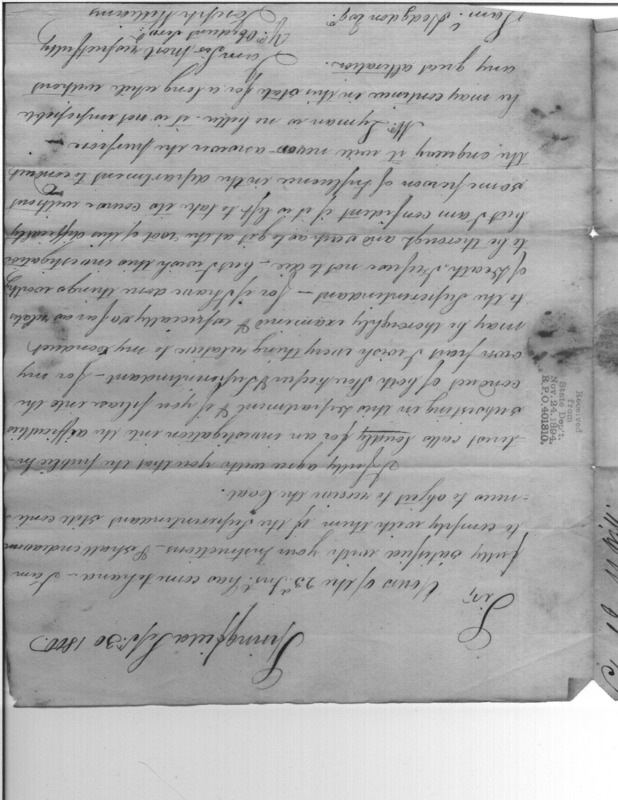 Springfield Sepr. 30 1800.
Sir,
Yours of the 23d. Inst. has come to hand - I am
fully satisfied with your Instructions - I shall endeavour
to comply with them if the Superintendant still conti-
-nues to object to receive the Coal.
I fully agree with you that the public In-
-terest calls loudly for an investigation into the difficulties
subsisting in this Department & if you please into the
conduct of both Storekeeper & Superintendant - for my
own part I wish every thing relative to my Conduct
may be thoroughly examined & especially so far as relates
to the Superintendant - for if I have done things worthy
of Death, I refuse not to die - but I wish this investigation
to be thorough and such as to get at the root of this difficulty
but I am confident if it is left to take its course without
some person of Influence in the department to conduct
the enquiry it will never answer the purpose -
Mr. Lyman is no better it is not impossible
he may continue in this state for a long while without
any great alteration.
I am Sir most respectfully
Yr. Obedient Servt.
Joseph Williams
Saml. Hodgdon Esqr.
Received
from
State Dep't.
Nov. 24, 1894.
R.P.O. 401310.